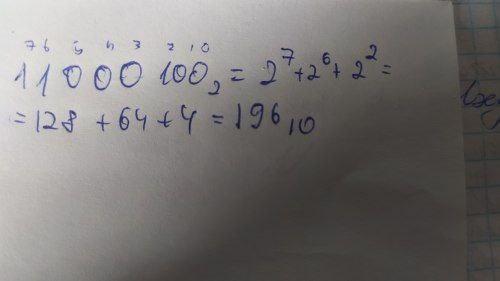 7 6 5 4 3 2 1 0
11000100₂ = 2⁷+2⁶+2² =
= 128 + 64 + 4 = 196₁₀